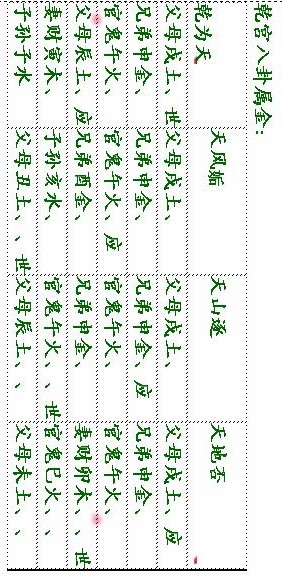 乾宫八卦属金:
乾为天 天风姤 天山逐 天地否
父母戌土、世 父母戌土、 父母戌土、 父母戌土、应
兄弟申金、 兄弟申金、 兄弟申金、应 兄弟申金、
官鬼午火、 官鬼午火、应 官鬼午火、 官鬼午火、
父母辰土、应 兄弟酉金、 兄弟申金、 妻财卯木、、世
妻财寅木、 子孙亥水、 官鬼午火、、世 官鬼巳火、、
子孙子水 父母丑土、、世 父母辰土、、 父母未土、、